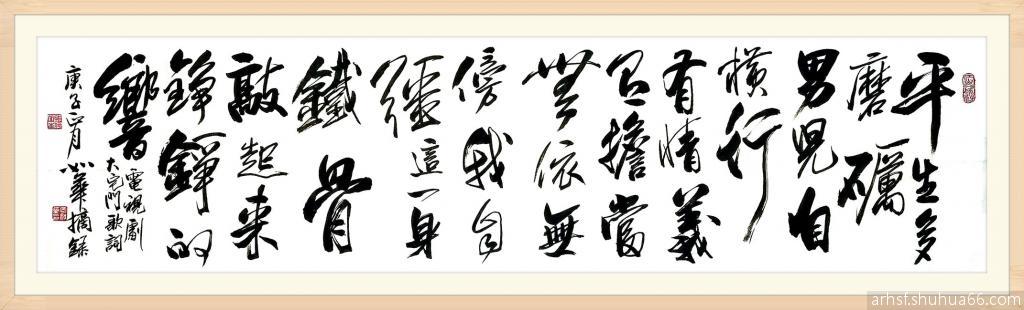 平生多
磨礪
男兒自
橫行
有情義
擔當
無依無
傍我自
強這一身
鐵骨
敲起来
錚錚的
響
電視劇
大宅門歌詞
庚子正月 華摘錄
arhsf.shuhua66.com